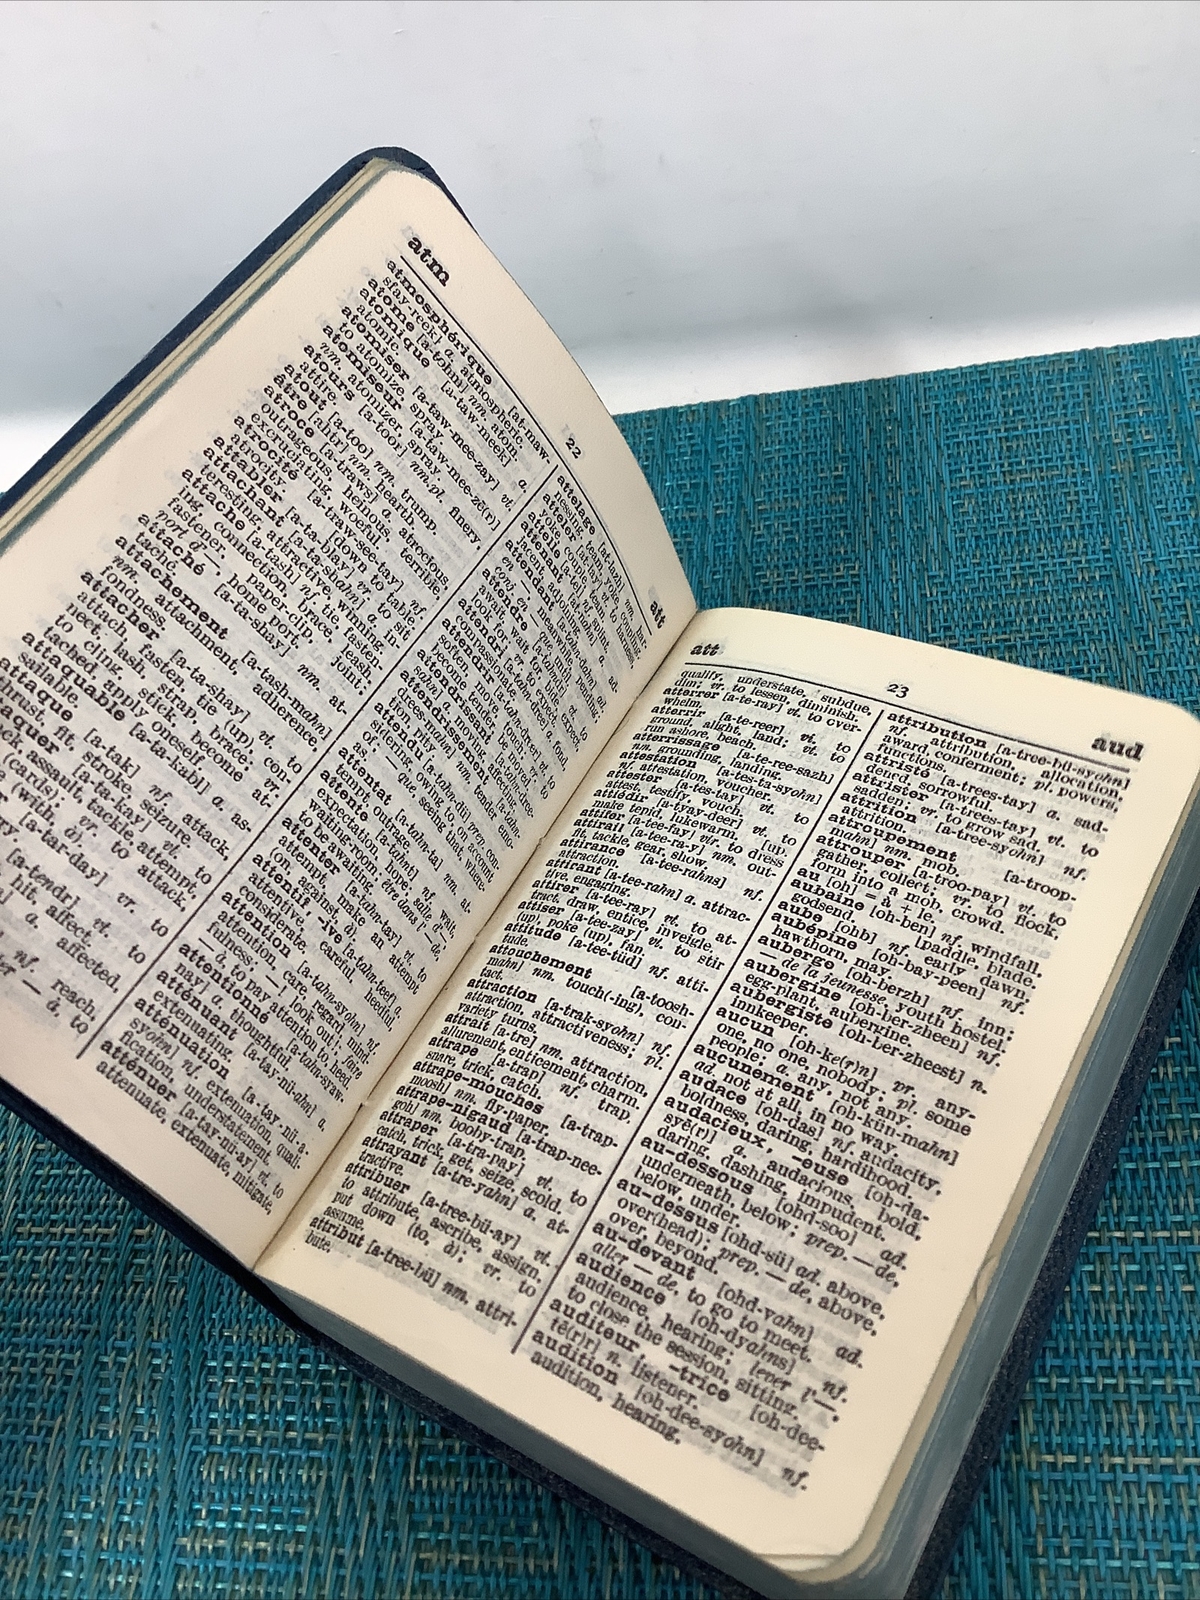 atm
22
att
atmosphérique [at-maw-
sfay-reek] a. atmospheric.
atome [a-tohm] nm. atom.
atomique [a-taw-meek] a.
atomic.
atomiser [a-taw-mee-zay] vt.
to atomize, spray.
atomiseur [a-taw-mee-zë(r)]
nm. atomizer, spray.
atours [a-toor] nm.pl. finery,
attire.
atout [a-too] nm. trump.
âtre [ahtr] nm. hearth.
atroce [a-traws] a. atrocious,
outrageous, heinous, terrible,
excruciating, woeful.
atrocité [a-traw-see-tay] nf.
atrocity.
attabler [a-ta-blay] vr. to sit
attachant [a-ta-shahn] a. in-
teresting, attractive, winning.
attache [a-tash] nf. tie, fasten-
ing, connection, brace, leash,
fastener, paper-clip, joint;
port d'—, home port.
attaché [a-ta-shay] nm. at-
taché.
attachement [a-tash-mahn]
nm. attachment, adherence,
fondness.
attacher [a-ta-shay] vt. to
attach, fasten, tie (up), con-
nect, lash, strap, brace; vr.
to cling, stick, become at-
tached, apply oneself to.
attaquable [a-ta-kabl] a. as-
sailable.
attaque [a-tak] nf. attack,
thrust, fit, stroke, seizure.
[a-ta-kay] vt. to
assault, tackle, attempt,
(cards); vr. to attack,
(with, à).
[a-tar-day] vr. to
attelage [at-lazh] nm. har-
nessing, team, yoke, coupling.
atteler [at-lay] vt. to harness,
yoke, couple, team.
attelle [a-tel] nf. splint.
attenant [at-nahn] a. ad-
jacent, adjoining.
attendre [a-tahndr] vt. to
await, wait for, expect,
look for; vr. to expect.
attendrir [a-tahn-dreer] vt. to
soften, move, touch; vr. to
become tender, be moved.
attendrissement [a-tahn-dree-
attentat [a-tahn-ta] nm. at-
tempt, outrage.
attente [a-tahnt] nf. wait,
expectation, hope; salle d'—,
waiting-room; être dans l'— de,
to be awaiting.
attenter [a-tahn-tay] vt. to
make an attempt
(on, against, à).
attentif, -ive [a-tahn-teef] a.
attentive, careful, heedful,
considerate.
attention [a-tahn-syohn] nf.
attention, care, regard, mind-
fulness; —! look out!; faire
— à, to pay attention to, heed.
attentionné [a-tahn-syaw-
nay] a. thoughtful.
atténuant [a-tay-nü-ahn] a.
extenuating.
atténuation [a-tay-nü-a-
syohn] nf. extenuation, quali-
fication, understatement.
atténuer [a-tay-nü-ay] vt. to
attenuate, extenuate, mitigate,
att
23
aud
qualify, understate, subdue,
dim; vr. to lessen, diminish.
atterrer [a-te-ray] vt. to over-
whelm.
atterrir [a-te-reer] vt. to
ground, alight, land; vi. to
run ashore, beach.
atterrissage [a-te-ree-sazh]
nm. grounding, landing.
attestation [a-tes-ta-syohn]
nf. attestation, voucher.
attester [a-tes-tay] vt. to
attest, testify, vouch.
attiédir [a-tyay-deer] vt. to
make tepid, lukewarm.
attifer [a-tee-fay] vtr. to dress
[up.
attirail [a-tee-rai] nm. out-
fit, tackle, gear, show.
attirance [a-tee-rahns] nf.
attraction.
attirant [a-tee-rahn] a. attrac-
tive, engaging.
attirer [a-tee-ray] vt. to at-
tract, draw, entice, inveigle.
attiser [a-tee-zay] vt. to stir
(up), poke (up), fan.
attitude [a-tee-tüd] nf. atti-
tude.
attouchement [a-toosh-
mahn] nm. touch(-ing), con-
tact.
attraction [a-trak-syohn] nf.
attraction, attractiveness; pl.
variety turns.
attrait [a-tre] nm. attraction,
allurement, enticement, charm.
attrape [a-trap] nf. trap,
snare, trick, catch.
attrape-mouches [a-trap-
moosh] nm. fly-paper.
attrape-nigaud [a-trap-nee-
goh] nm. booby-trap.
attraper [a-tra-pay] vt. to
catch, trick, get, seize, scold.
attrayant [a-tre-yahn] a. at-
tractive.
attribuer [a-tree-bü-ay] vt.
to attribute, ascribe, assign,
put down (to, à); vr. to
assume.
attribut [a-tree-bü] nm. attri-
bute.
attribution [a-tree-bü-syohn]
nf. attribution, allocation,
award, conferment; pl. powers,
functions.
attristé [a-trees-tay] a. sad-
dened, sorrowful.
attrister [a-trees-tay] vt. to
sadden; vr. to grow sad.
attrition [a-tree-syohn] nf.
attrition.
attroupement [a-troop-
mahn] nm. mob.
attrouper [a-troo-pay] vt. to
gather, collect; vr. to flock,
form into a mob, crowd.
au [oh] = à + le.
aubaine [oh-ben] nf. windfall,
godsend.
aube [ohb] nf. paddle, blade,
[early dawn.
aubépine [oh-bay-peen] nf.
hawthorn, may.
auberge [oh-berzh] nf. inn;
— de la jeunesse, youth hostel.
aubergine [oh-ber-zheen] nf.
egg-plant, aubergine.
aubergiste [oh-ber-zheest] n.
innkeeper.
aucun [oh-ke(r)n] pr. any-
one, no one, nobody; pl. some
people; a. any, not any.
aucunement [oh-kün-mahn]
ad. not at all, in no way.
audace [oh-das] nf. audacity,
boldness, daring, hardihood.
audacieux, -euse [oh-da-
syë(r)] a. audacious, bold,
daring, dashing, impudent.
au-dessous [ohd-soo] ad.
underneath, below; prep. — de,
below, under.
au-dessus [ohd-sü] ad. above,
over(head); prep. — de, above,
over, beyond.
au-devant [ohd-vahn] ad.
aller — de, to go to meet.
audience [oh-dyahns] nf.
audience, hearing; lever l'—,
to close the session, sitting.
auditeur, -trice [oh-dee-
të(r)r] n. listener.
audition [oh-dee-syohn] nf.
audition, hearing.